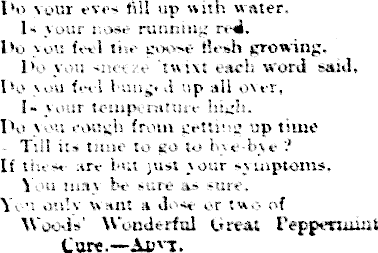 Do your eyes fill up with water.
Is your nose running red.
Do you feel the goose flesh growing.
Do you sneeze 'twixt each word said,
Do you feel bunged up all over,
Is your temperature high.
Do you cough from getting up time
Till its time to go to bye-bye?
If these are but just your symptoms,
You may be sure as sure,
You only want a dose or two of
Woods' Wonderful Great Peppermint
Cure.—ADVT.